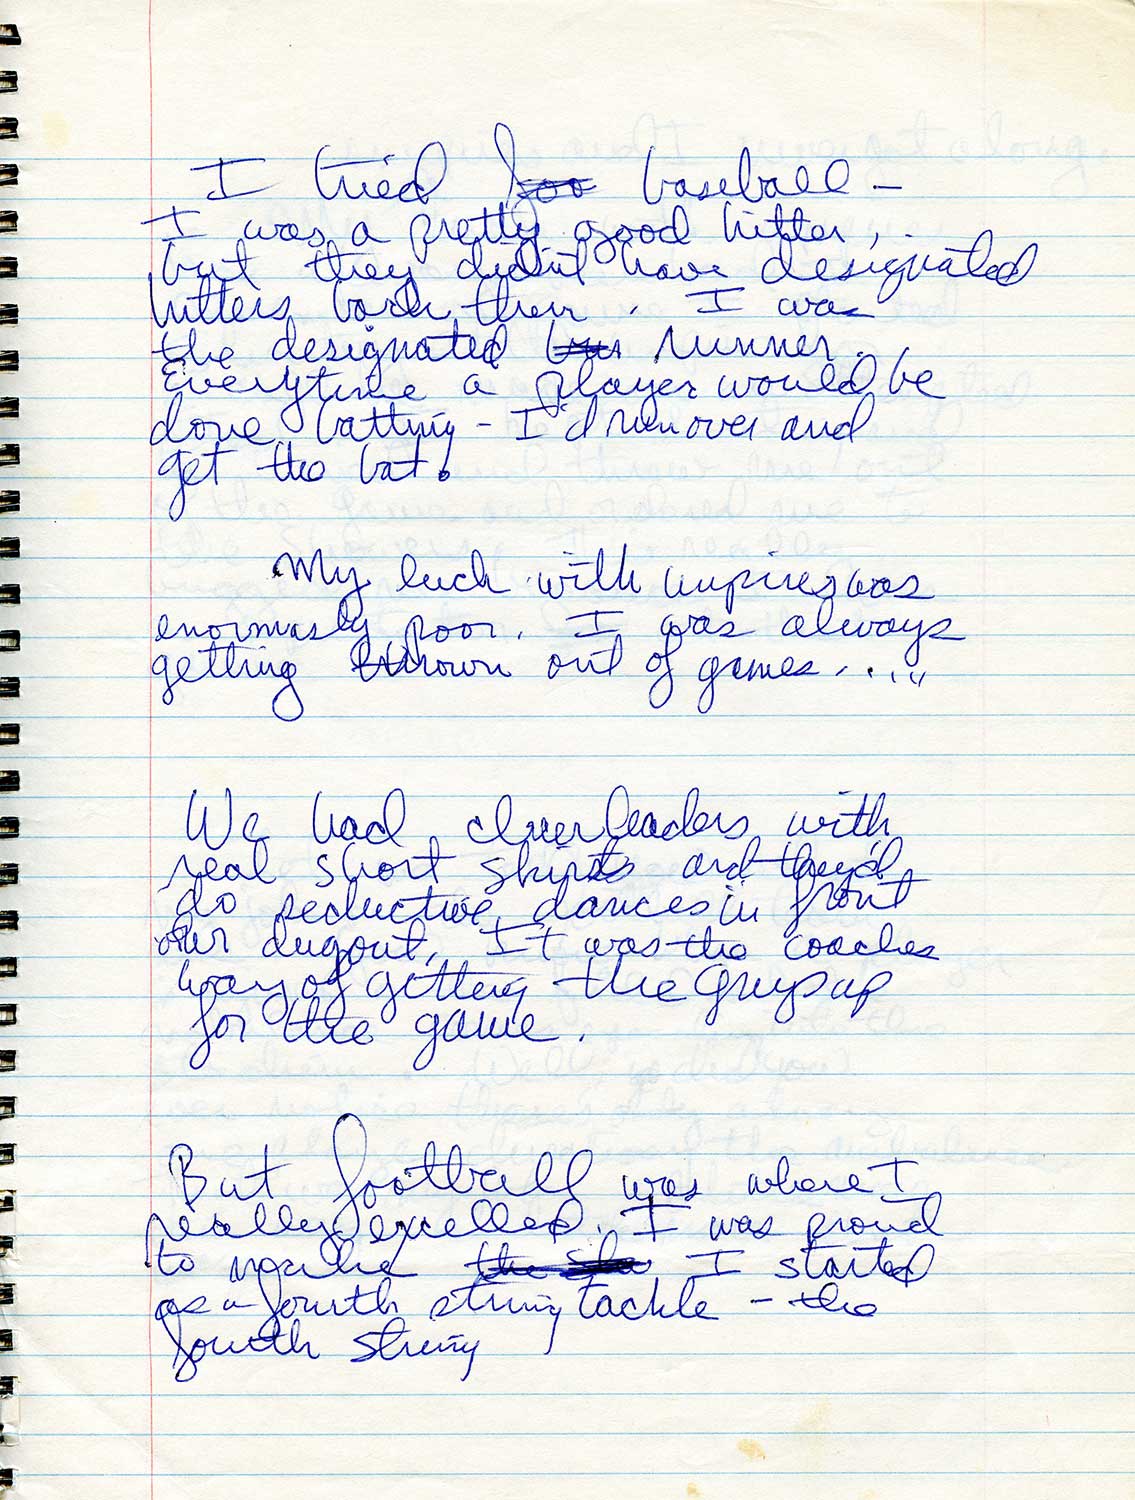 I tried foo baseball –
I was a pretty good hitter,
but they didn't have designated
hitters back then. I was
the designated runner.
Everytime a player would be
done batting – I'd run over and
get the bat.
My luck with umpires was
enormasly poor. I was always
getting thrown out of games.....
We had cheerleaders with
real short skirts and they'd
do seductive dances in front
our dugout. It was the coaches
way of getting the guys up
for the game.
But football was where I
really excelled. I was proud
to make the I started
as a fourth string tackle – the
fourth string